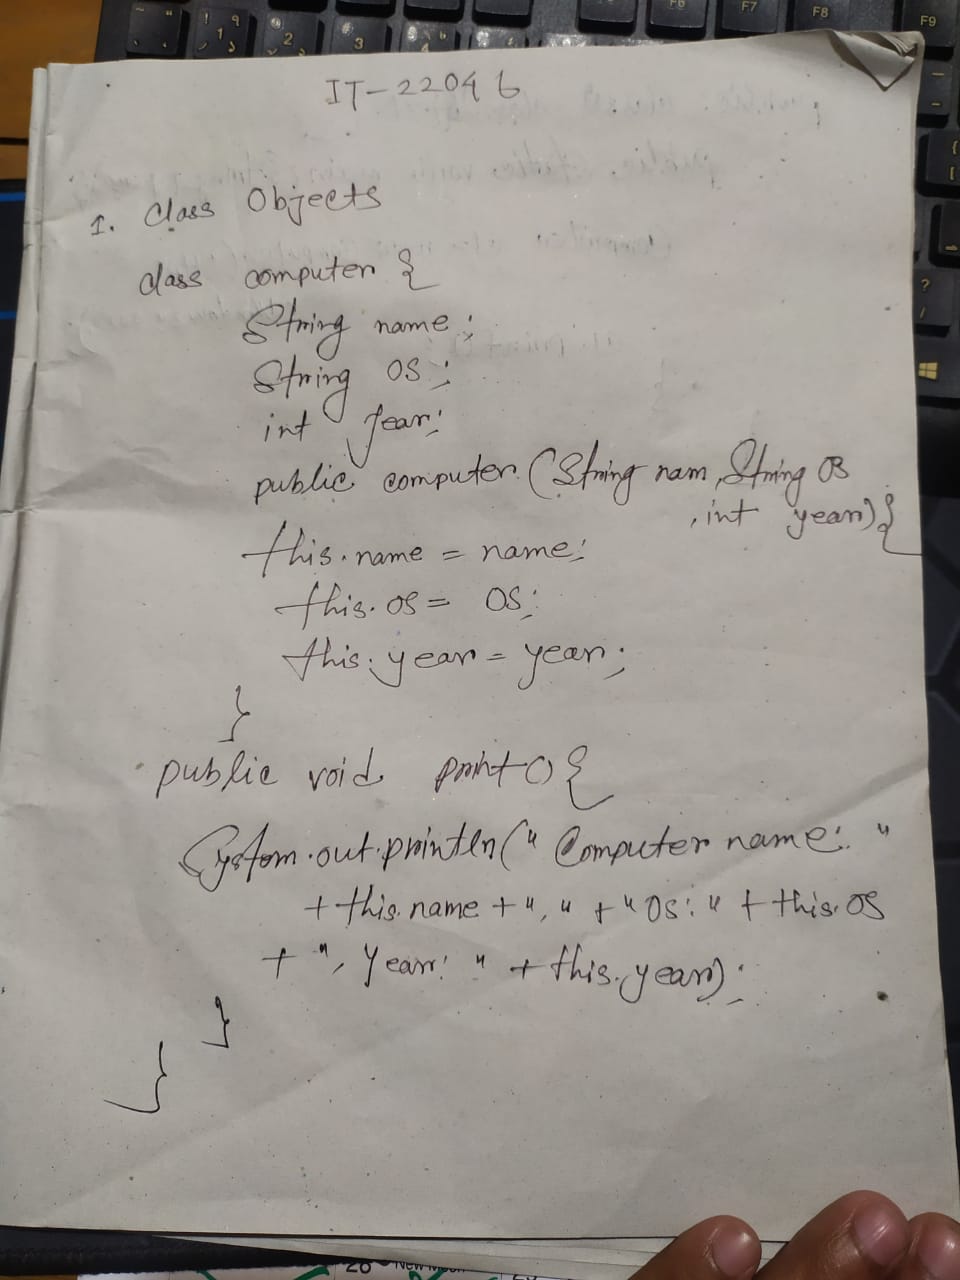 IT-22046
1. Class Objects
class computer {
String name;
String OS;
int year;
public computer (String nam, String OS
, int year) {
this.name = name;
this.os = OS;
this.year = year;
}
public void print() {
System.out.println(" Computer name: "
+ this.name + "," + "OS:" + this.OS
+ ", Year: " + this.year);
}
}